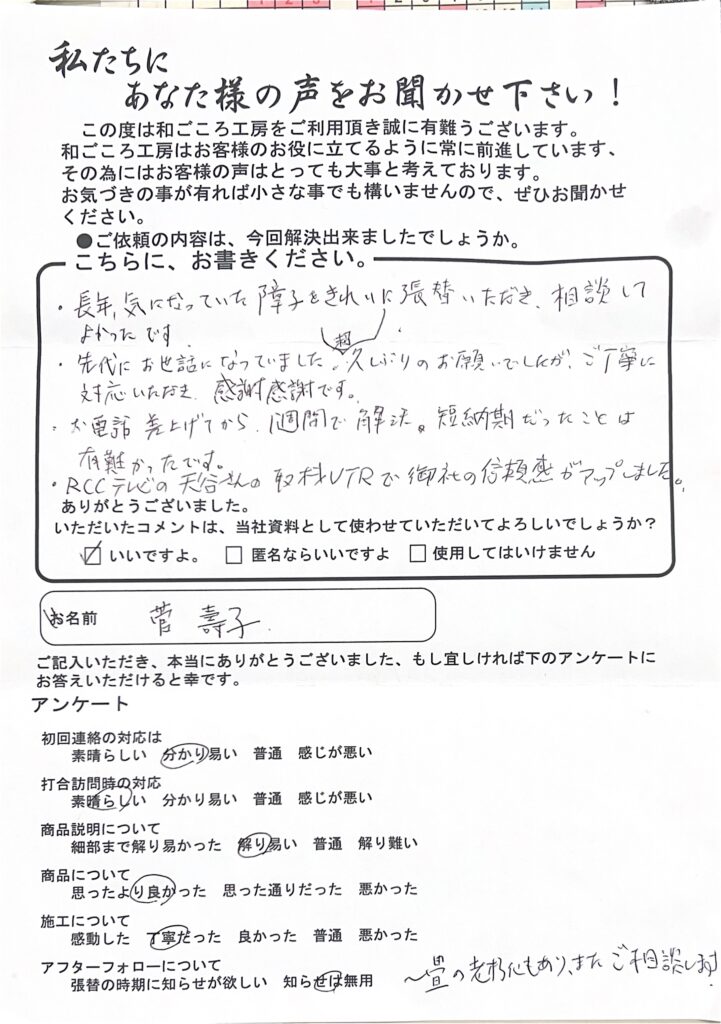 私たちに
あなた様の声をお聞かせ下さい！
この度は和ごころ工房をご利用頂き誠に有難うございます。
和ごころ工房はお客様のお役に立てるように常に前進しています、
その為にはお客様の声はとっても大事と考えております。
お気づきの事が有れば小さな事でも構いませんので、ぜひお聞かせ
ください。
●ご依頼の内容は、今回解決出来ましたでしょうか。
こちらに、お書きください。
・長年、気になっていた障子をきれいに張替いただき、相談して
よかったです。
・先代にお世話になっていました。超久しぶりのお願いでしたが、ご丁寧に
対応いただき、感謝感謝です。
・お電話差上げてから、1週間で解決。短納期だったことは
有難かったです。
・RCCテレビの天谷さんの取材VTRで御社の信頼感がアップしました。
ありがとうございました。
いただいたコメントは、当社資料として使わせていただいてよろしいでしょうか？
☑いいですよ。 □匿名ならいいですよ □使用してはいけません
お名前 菅 壽子
ご記入いただき、本当にありがとうございました、もし宜しければ下のアンケートに
お答えいただけると幸です。
アンケート
初回連絡の対応は
素晴らしい 分かり易い 普通 感じが悪い
打合訪問時の対応
素晴らしい 分かり易い 普通 感じが悪い
商品説明について
細部まで解り易かった 解り易い 普通 解り難い
商品について
思ったより良かった 思った通りだった 悪かった
施工について
感動した 丁寧だった 良かった 普通 悪かった
アフターフォローについて
張替の時期に知らせが欲しい 知らせは無用
～畳の老朽化もあり、またご相談します！